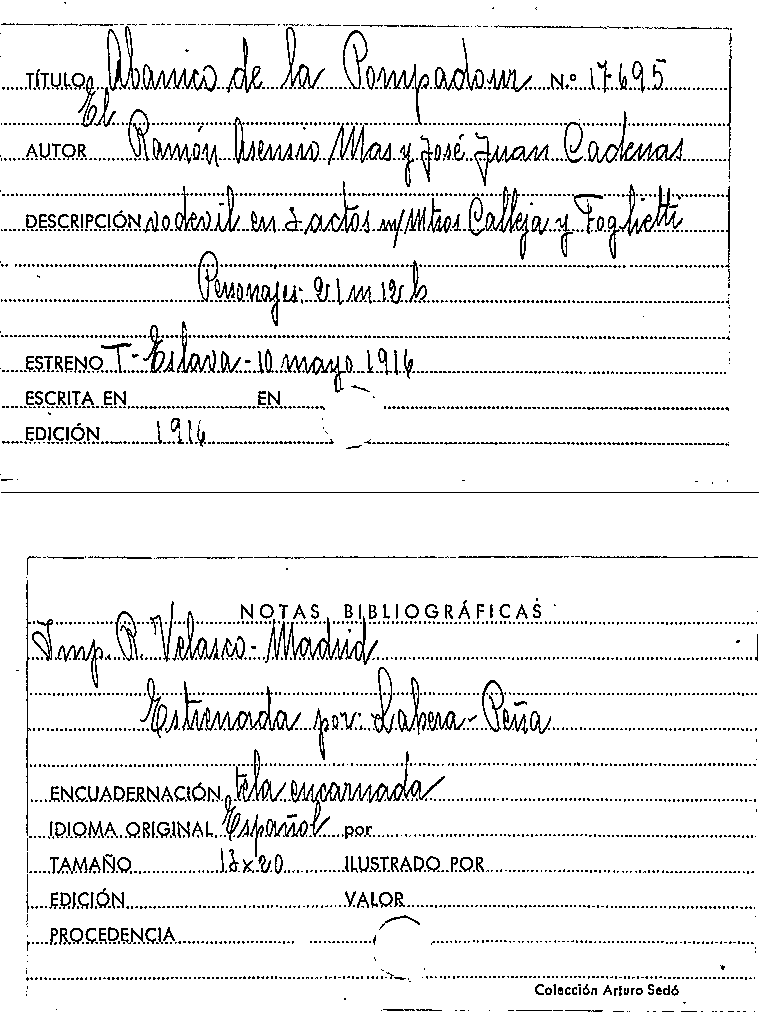 TÍTULO Abanico de la Pompadour N.º 17.695
El
AUTOR Ramón Asensio Mas y José Juan Cadenas
DESCRIPCIÓN vodevil en 2 actos m/ Mtros Calleja y Foglietti
Personajes: 21 m 12 h
ESTRENO T- Eslava - 10 mayo 1916
ESCRITA EN EN
EDICIÓN 1916
NOTAS BIBLIOGRÁFICAS
Imp. R. Velasco - Madrid
Estrenada por: Labera - Peña
ENCUADERNACIÓN tela encarnada
IDIOMA ORIGINAL Español por
TAMAÑO 13x20 ILUSTRADO POR
EDICIÓN VALOR
PROCEDENCIA
Colección Arturo Sedó